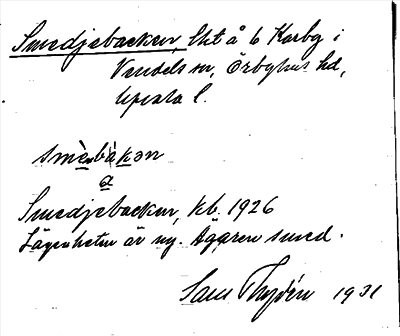 Smedjebacken, lht å 6 Karby i
Vendels sn, Örbyhus hd,
Upsala l.
smèbàkən
a
Smedjebacken, kb. 1926
Lägenheten är ny. Ägaren smed.
Sam Thydén 1931